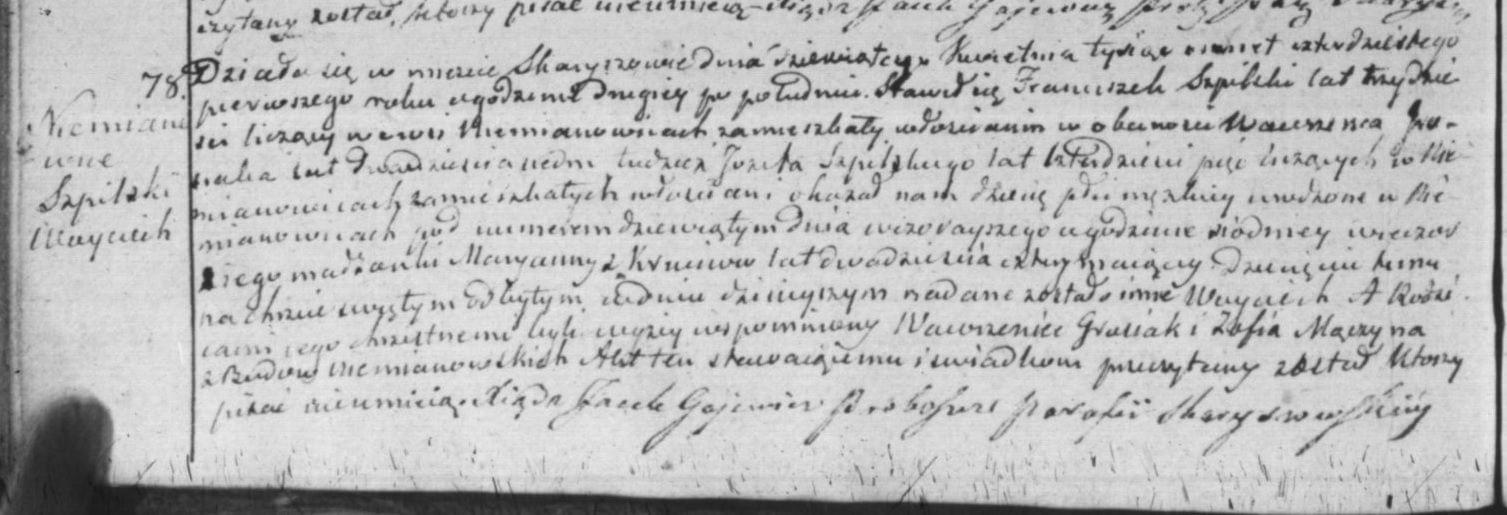 czytany został, którzy pisać nieumieją Xiądz Jacek Gajewicz
78. Działo się w mieście Skaryszewie dnia dziewiątego Kwietnia tysiąc osmset czterdziestego
pierwszego roku o godzinie drugiey po południu. Stawił się Franciszek Szpilski lat trzydzie
ści liczący we wsi Niemianowicach zamieszkały włościanin w obecności Wawrzenca Gra-
siaka lat dwadzieścia siedm tudzież Józefa Szpilskiego lat czterdzieści pięć liczących w Nie
mianowicach zamieszkałych włościan i okazał nam dziecię płci męzkiey urodzone w Nie-
mianowicach pod numerem dziewiątym dnia wczorayszego o godzinie siódmey wieczor
z jego małżonki Maryanny z lat dwadzieścia cztery maiącey. Dziecięciu temu
na chrzcie świętym odbytym w dniu dzisieyszym nadane zostało imie Woyciech A Rodzi
cami jego chrzestnemi byli wyżey wspomniony Wawrzeniec Grasiak i Zofia Mączyna
z Budow Niemianowskich Akt ten stawaiącemu i świadkom przeczytany został którzy
pisać nieumieją. Xiądz Jacek Gajewicz Proboszcz Parafii Skaryszewskiey
Niemiano
wice
Szpilski
Woyciech